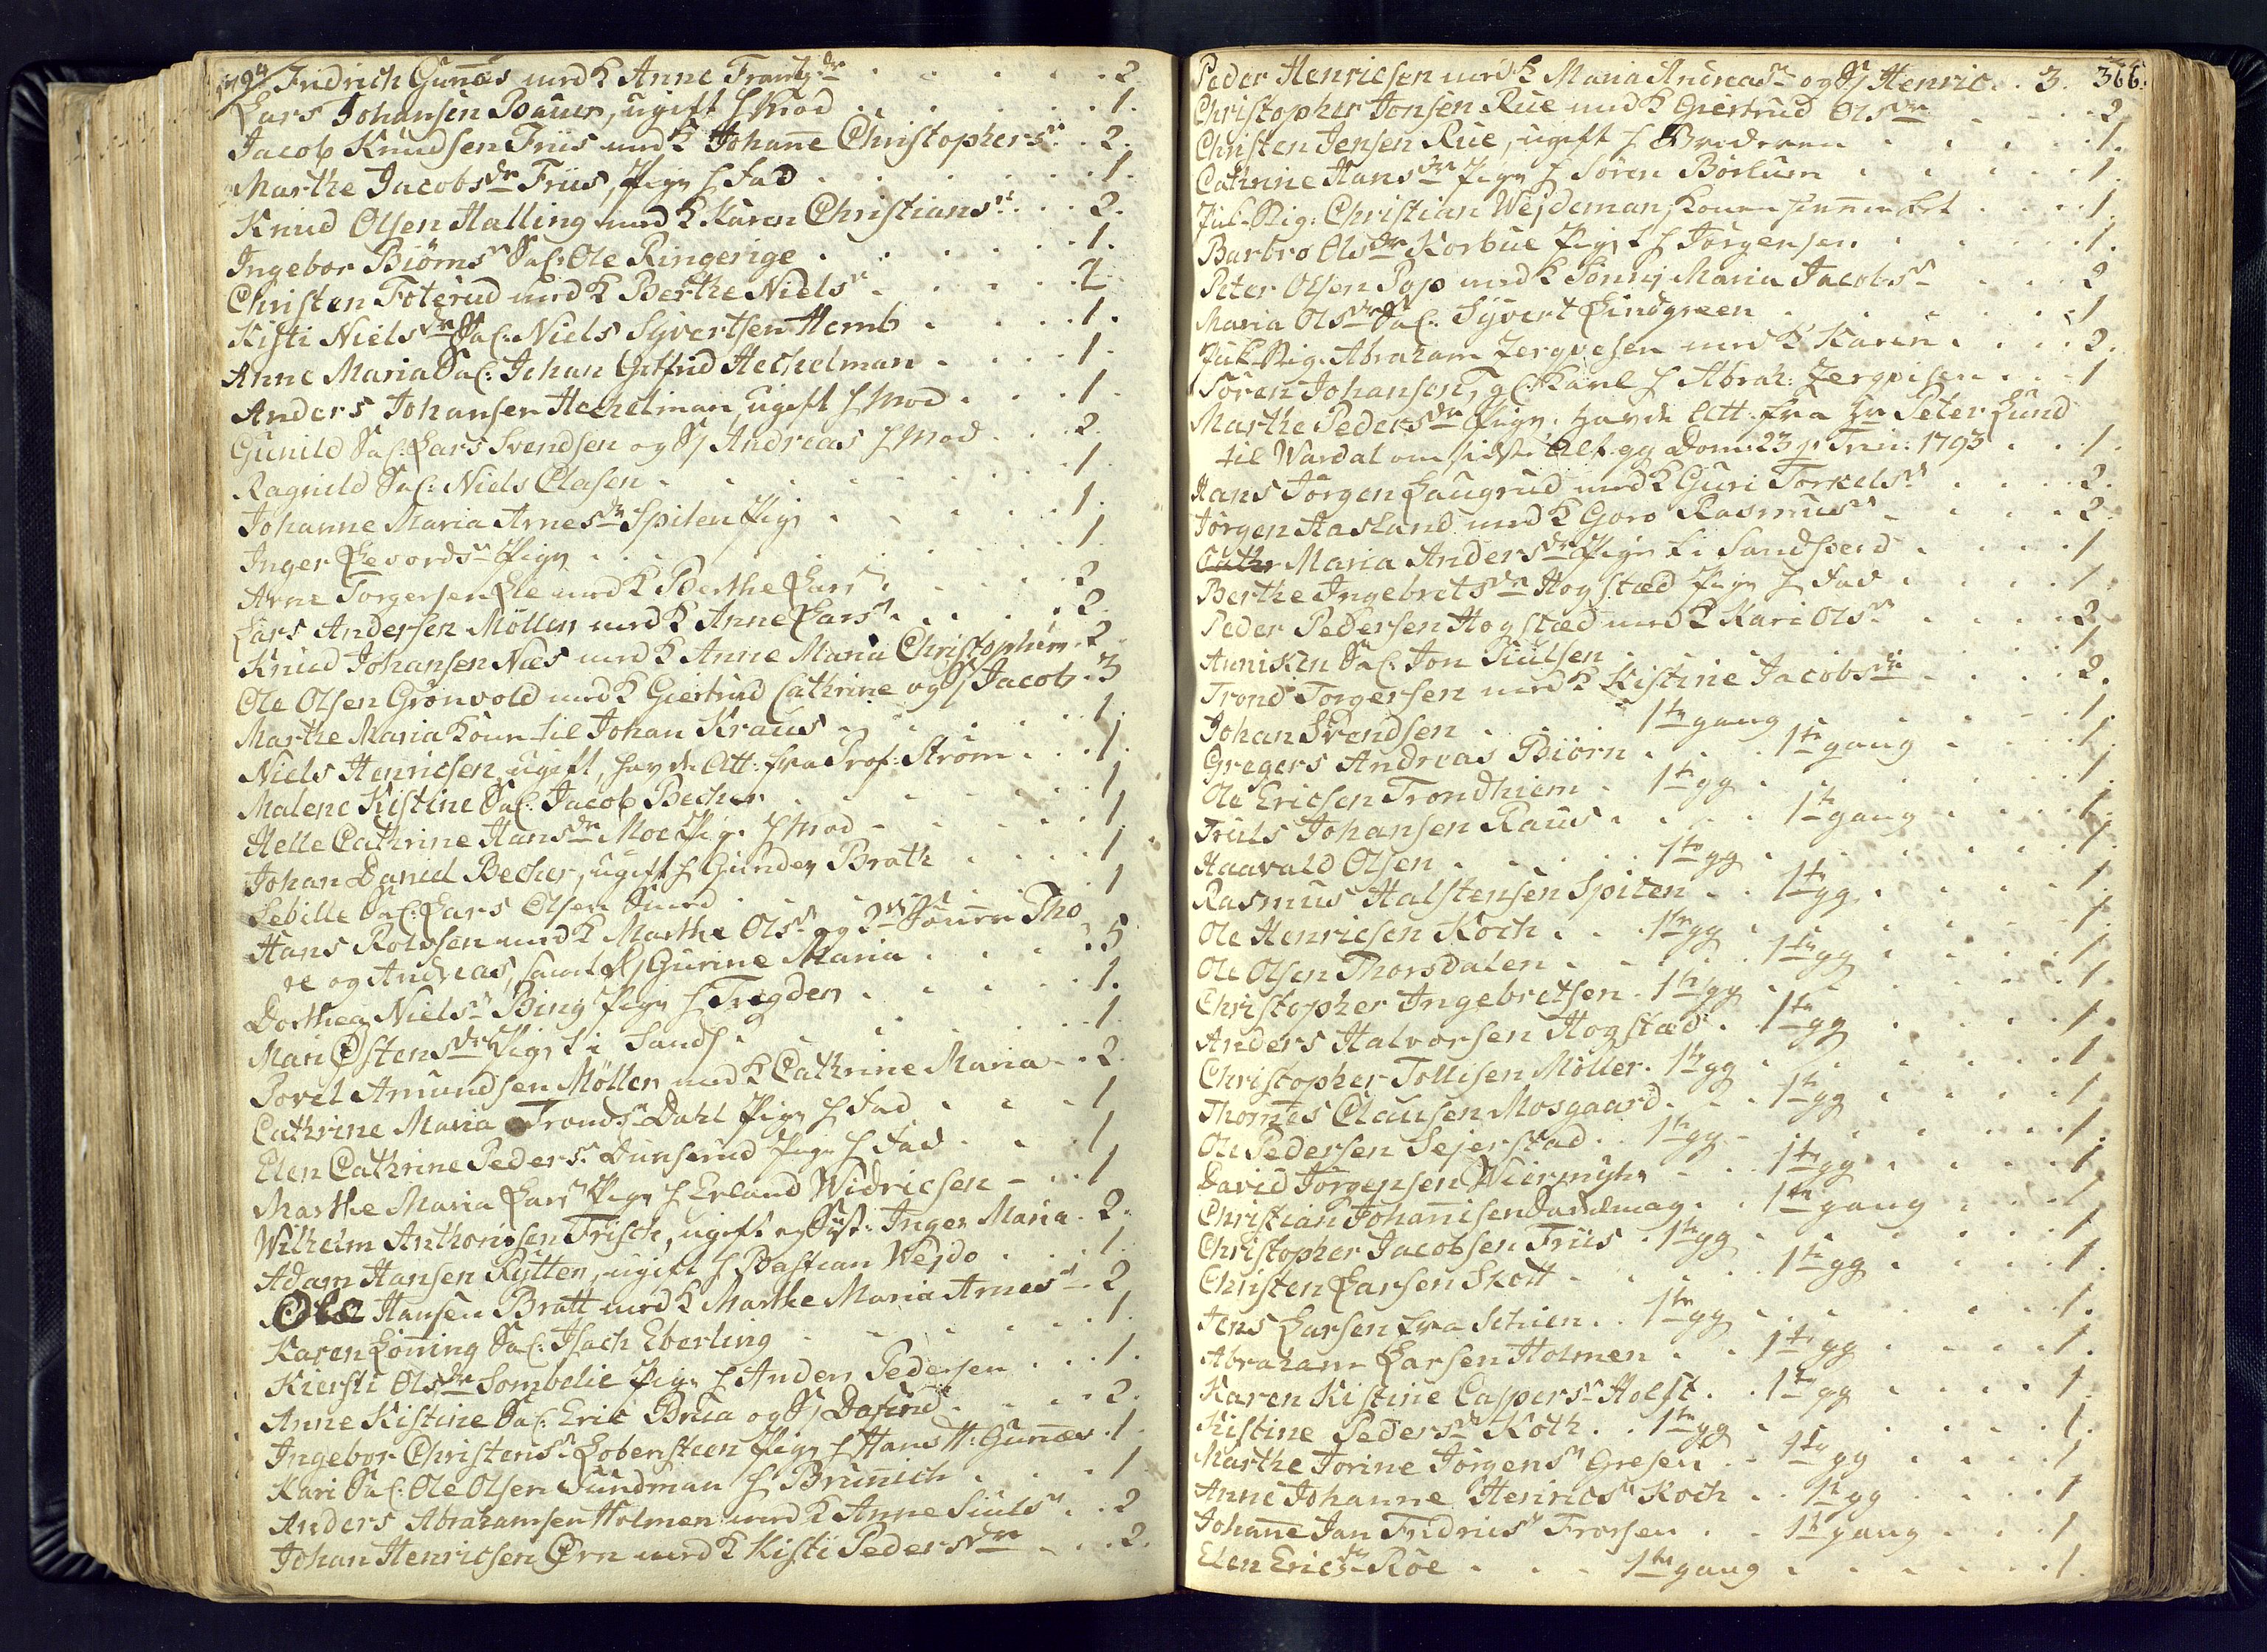 1794 Fridrich Gunæs med K Anne Frantz dr 2.
Lars Johansen Bauer, ugift h Mod 1.
Jacob Knudsen Friis med K Johane Christophers 2.
Marthe Jacobs dr Friis, Pige h Fad 1.
Knud Olsen Halling med K Karen Christians 2.
Ingebor Biørns Sal: Ole Ringerige 1.
Christen Foterud med K Berthe Niels 2
Kisti Niels dr Sal: Niels Syvertsen Hemb 1.
Anne Maria Sal: Johan Gotfrid Hechelman 1.
Anders Johansen Hechelman, ugift h Mod 1
Gunild Sal: Lars Svendsen og Andreas h Mod 2.
Ragnild Sal: Niels Olasen 1
Johanne Maria Arnes dr Spiten Pige 1.
Inger Levords Pige 1
Arne Torgersen Lie med K Berthe Lars 2
Lars Andersen Möllen med K Anne Lars 2.
Knud Johansen Næs med K Anne Maria Christophers 2
Ole Olsen Grønvold med K Giertrud Cathrine og Jacob 3
Marthe Maria Kone til Johan Kraus 1.
Niels Henricsen, ugift, havde Att: fra Prof: Strøm 1.
Malene Kistine Sal: Jacob Becher 1
Helle Cathrine Hans dr Moe Pige h Mod 1
Johan Daniel Becher, ugift h Gunder Brath 1
Sebille Sal: Lars Olsen 1
Hans Rolvsen med K Marthe Ols og 2de Sönner Tho
re og Andreas, samt Gurine Maria 5
Dorthea Niels Bing Pige h Tregder 1.
Mari Østens dr Pige t i Sands 1
Povel Amundsen Möllen med K Cathrine Maria 2
Cathrine Maria Tronds Dahl Pige h Fad 1
Elen Cathrine Peders Dunserud Pige h Fad 1
Marthe Maria Lars Pige h Erland Widricsen 1
Wilhelm Anthonisen Frisch, ugift og Syst: Inger Maria 2.
Adam Hansen Rytter, ugift h Bastian Wejdo 1.
Ole Hansen Bratt med K Marthe Maria Arnes 2
Karen Lönning Sal: Isach Eberling 1.
Kiersti Ols dr Sombelie Pige h Anders Pedersen 1.
Anne Kistine Sal: Eric Brua og 2.
Ingebor Christens Lobensteen Pige h Hans H: Gunæs 1.
Kari Sal: Ole Olsen Sundman h Brunich 1
Anders Abrahamsen Holmen med K Anne Siuls 2
Johan Henricsen Ørn med K Kisti Peders dr 2.
Peder Henricsen med K Maria Andreas og Henric 3. 366.
Christopher Jonsen Rue med K Giertrud Ols dr 2.
Christen Jensen Rue, ugift h Broderen 1.
Cathrine Hans dr Pige h Sören Börlum 1.
Christian Wejdeman, Konen 1
Barbro Ols dr Korbue Pige h Jörgensen 1.
Peter Olsen Pop med K Maria Jacobs 2
Maria Ols dr Sal: Syvert Lindgreen 1
Abraham Zergvesen med K Karen 2.
Sören Johansen, Karl h Abrah: Zergvisen 1
Marthe Peders dr Pige. havde Att. fra Hr Peter Lund
til Wardal om sidste Alt: gg Dom: 23 p. Trin: 1793 1.
Hans Jörgen Haugrud med K Guri Torkels 2.
Jörgen Aasland med K Goro Rasmus 2.
Maria Anders dr Pige t i Sandsverd 1
Berthe Ingebrets dr Hogstæd Pige h Fad 1.
Peder Pedersen Hogstæd med K Kari Ols 2
Anniken Sal: Jon 1
Trond Torgersen med K Kistine Jacobs dr 2.
Johan Svendsen 1te gang 1.
Gregers Andreas Biörn 1te gang 1.
Ole Ericsen Trondhiem 1te gg 1
Truls Johansen Raus 1te gang 1.
Haavald Olsen 1te gg 1.
Rasmus Halstensen Spiten 1te gg 1.
Ole Henricsen Koch 1te gg 1.
Ole Olsen Thorsdalen 1te gg 1
Christopher Ingebretsen 1te gg 1.
Anders Halvorsen Hogstæd 1te gg 1.
Christopher Tollisen Möller 1te gg 1
Thomes Clausen Mosgaard 1te gg 1.
Ole Pedersen Sejerstad 1te gg 1.
David Jörgensen 1te gg 1
Christian Johanisen 1te gang 1
Christopher Jacobsen Friis 1te gg 1
Christen Larsen Skott 1te gg 1.
Jens Larsen fra Schien 1te gg 1.
Abraham Larsen Holmen 1te gg 1.
Karen Kistine Caspers Holst 1te gg 1
Kistine Peders Koth 1te gg 1.
Marthe Jorine Jörgens Gresen 1te gg 1
Anne Johanne Henrics Koch 1te gg 1
Johane Jan Fridrics Frorsen 1te gang 1
Elen Erics Röe 1te gang 1.